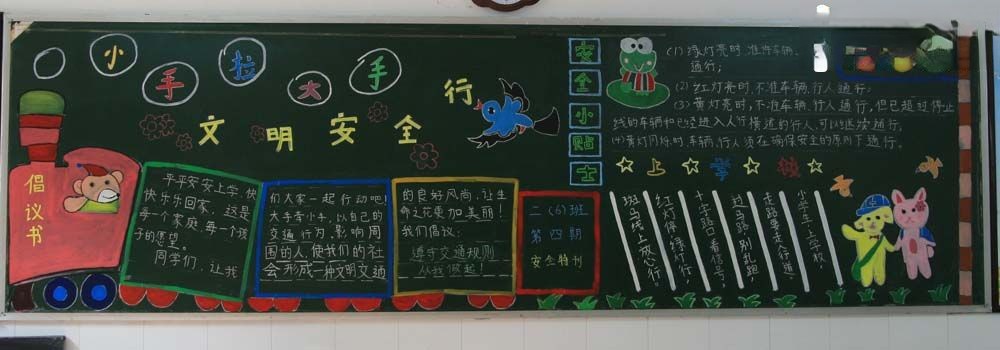 小手拉大手
文明安全行
倡议书
平平安安上学,快
快乐乐回家,这是
每一个家庭,每一个孩
子的愿望。
同学们,让我
们大家一起行动吧!
大手牵小手,以自己的
交通行为,影响周
围的人,使我们的社
会形成一种文明交通
的良好风尚,让生
命之花更加美丽!
我们倡议:
遵守交通规则
从我做起!
二(6)班
第四期
安全特刊
安全小贴士
(1)绿灯亮时,准许车辆、
通行;
(2)红灯亮时,不准车辆、行人通行;
(3)黄灯亮时,不准车辆、行人通行,但已超过停止
线的车辆和已经进入人行横道的行人,可以继续通行。
(4)黄灯闪烁时,车辆、行人须在确保安全的原则下通行。
☆上☆学☆放☆
小学生,上学校,
走路要走人行道,
过马路,别乱跑,
十字路口看信号,
红灯停,绿灯行,
斑马线上放心行。